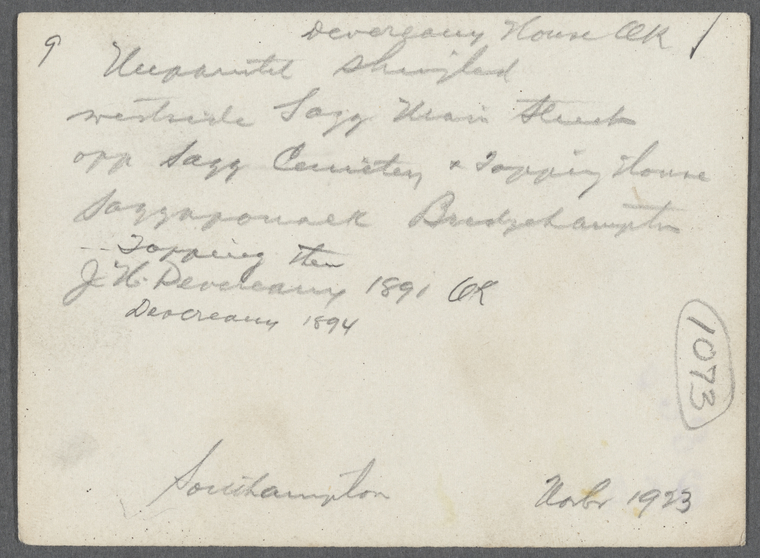 9
Devereaux House OK
Unpainted shingled
westside Sagg Main Street
opp Sagg Cemetery + Topping House
Saggaponack Bridgehampton
-- Topping then
J. H. Devereaux 1891 OK
Devereaux 1894
1073
Southampton
Novbr 1923